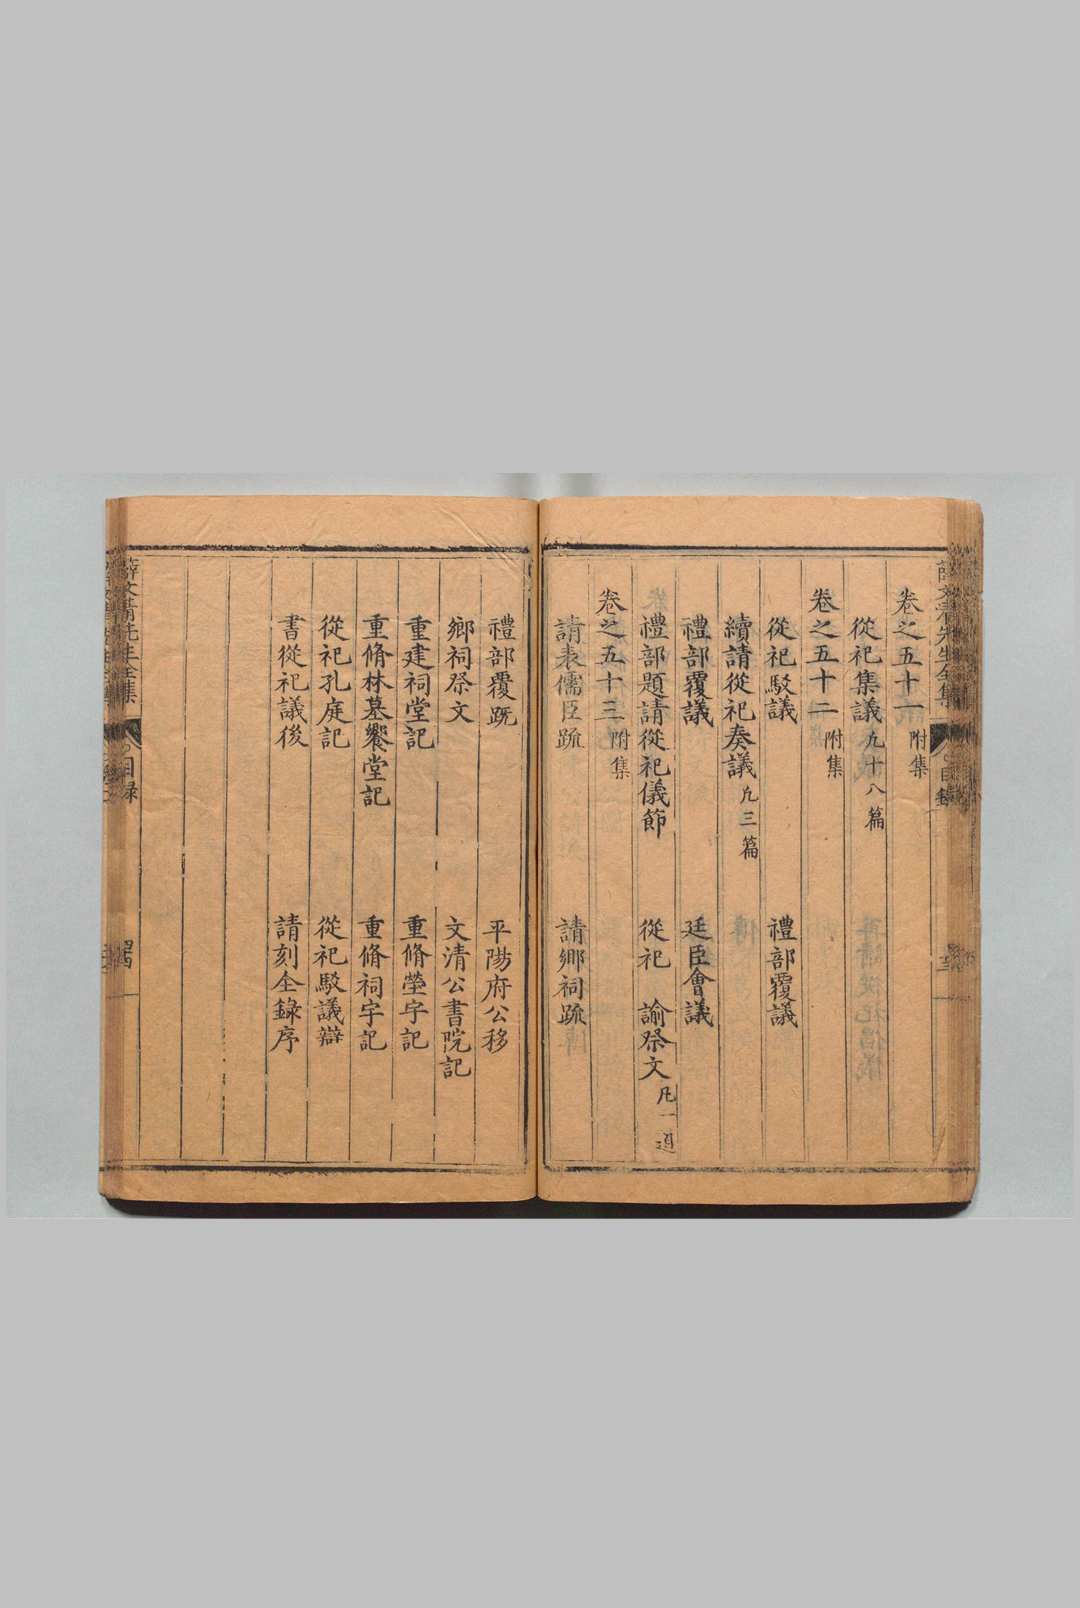 卷之五十一 附集
從祀集議 凡十八篇
卷之五十二 附集
從祀駁議 禮部覆議
續請從祀奏議 凡三篇
禮部覆議 廷臣會議
禮部題請從祀儀節 從祀 諭祭文 凡一道
卷之五十三 附集
請表儒臣疏 請鄉祠疏
禮部覆疏 平陽府公移
鄉祠祭文 文清公書院記
重建祠堂記 重脩塋宇記
重脩林墓饗堂記 重脩祠宇記
從祀孔庭記 從祀駁議辯
書從祀議後 請刻全錄序
薛文清先生全集 目錄